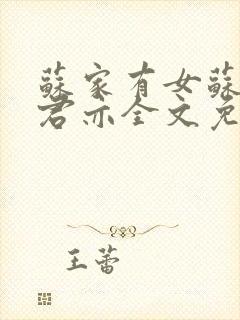 蘇家有女蘇
君亦全文免
王蕾